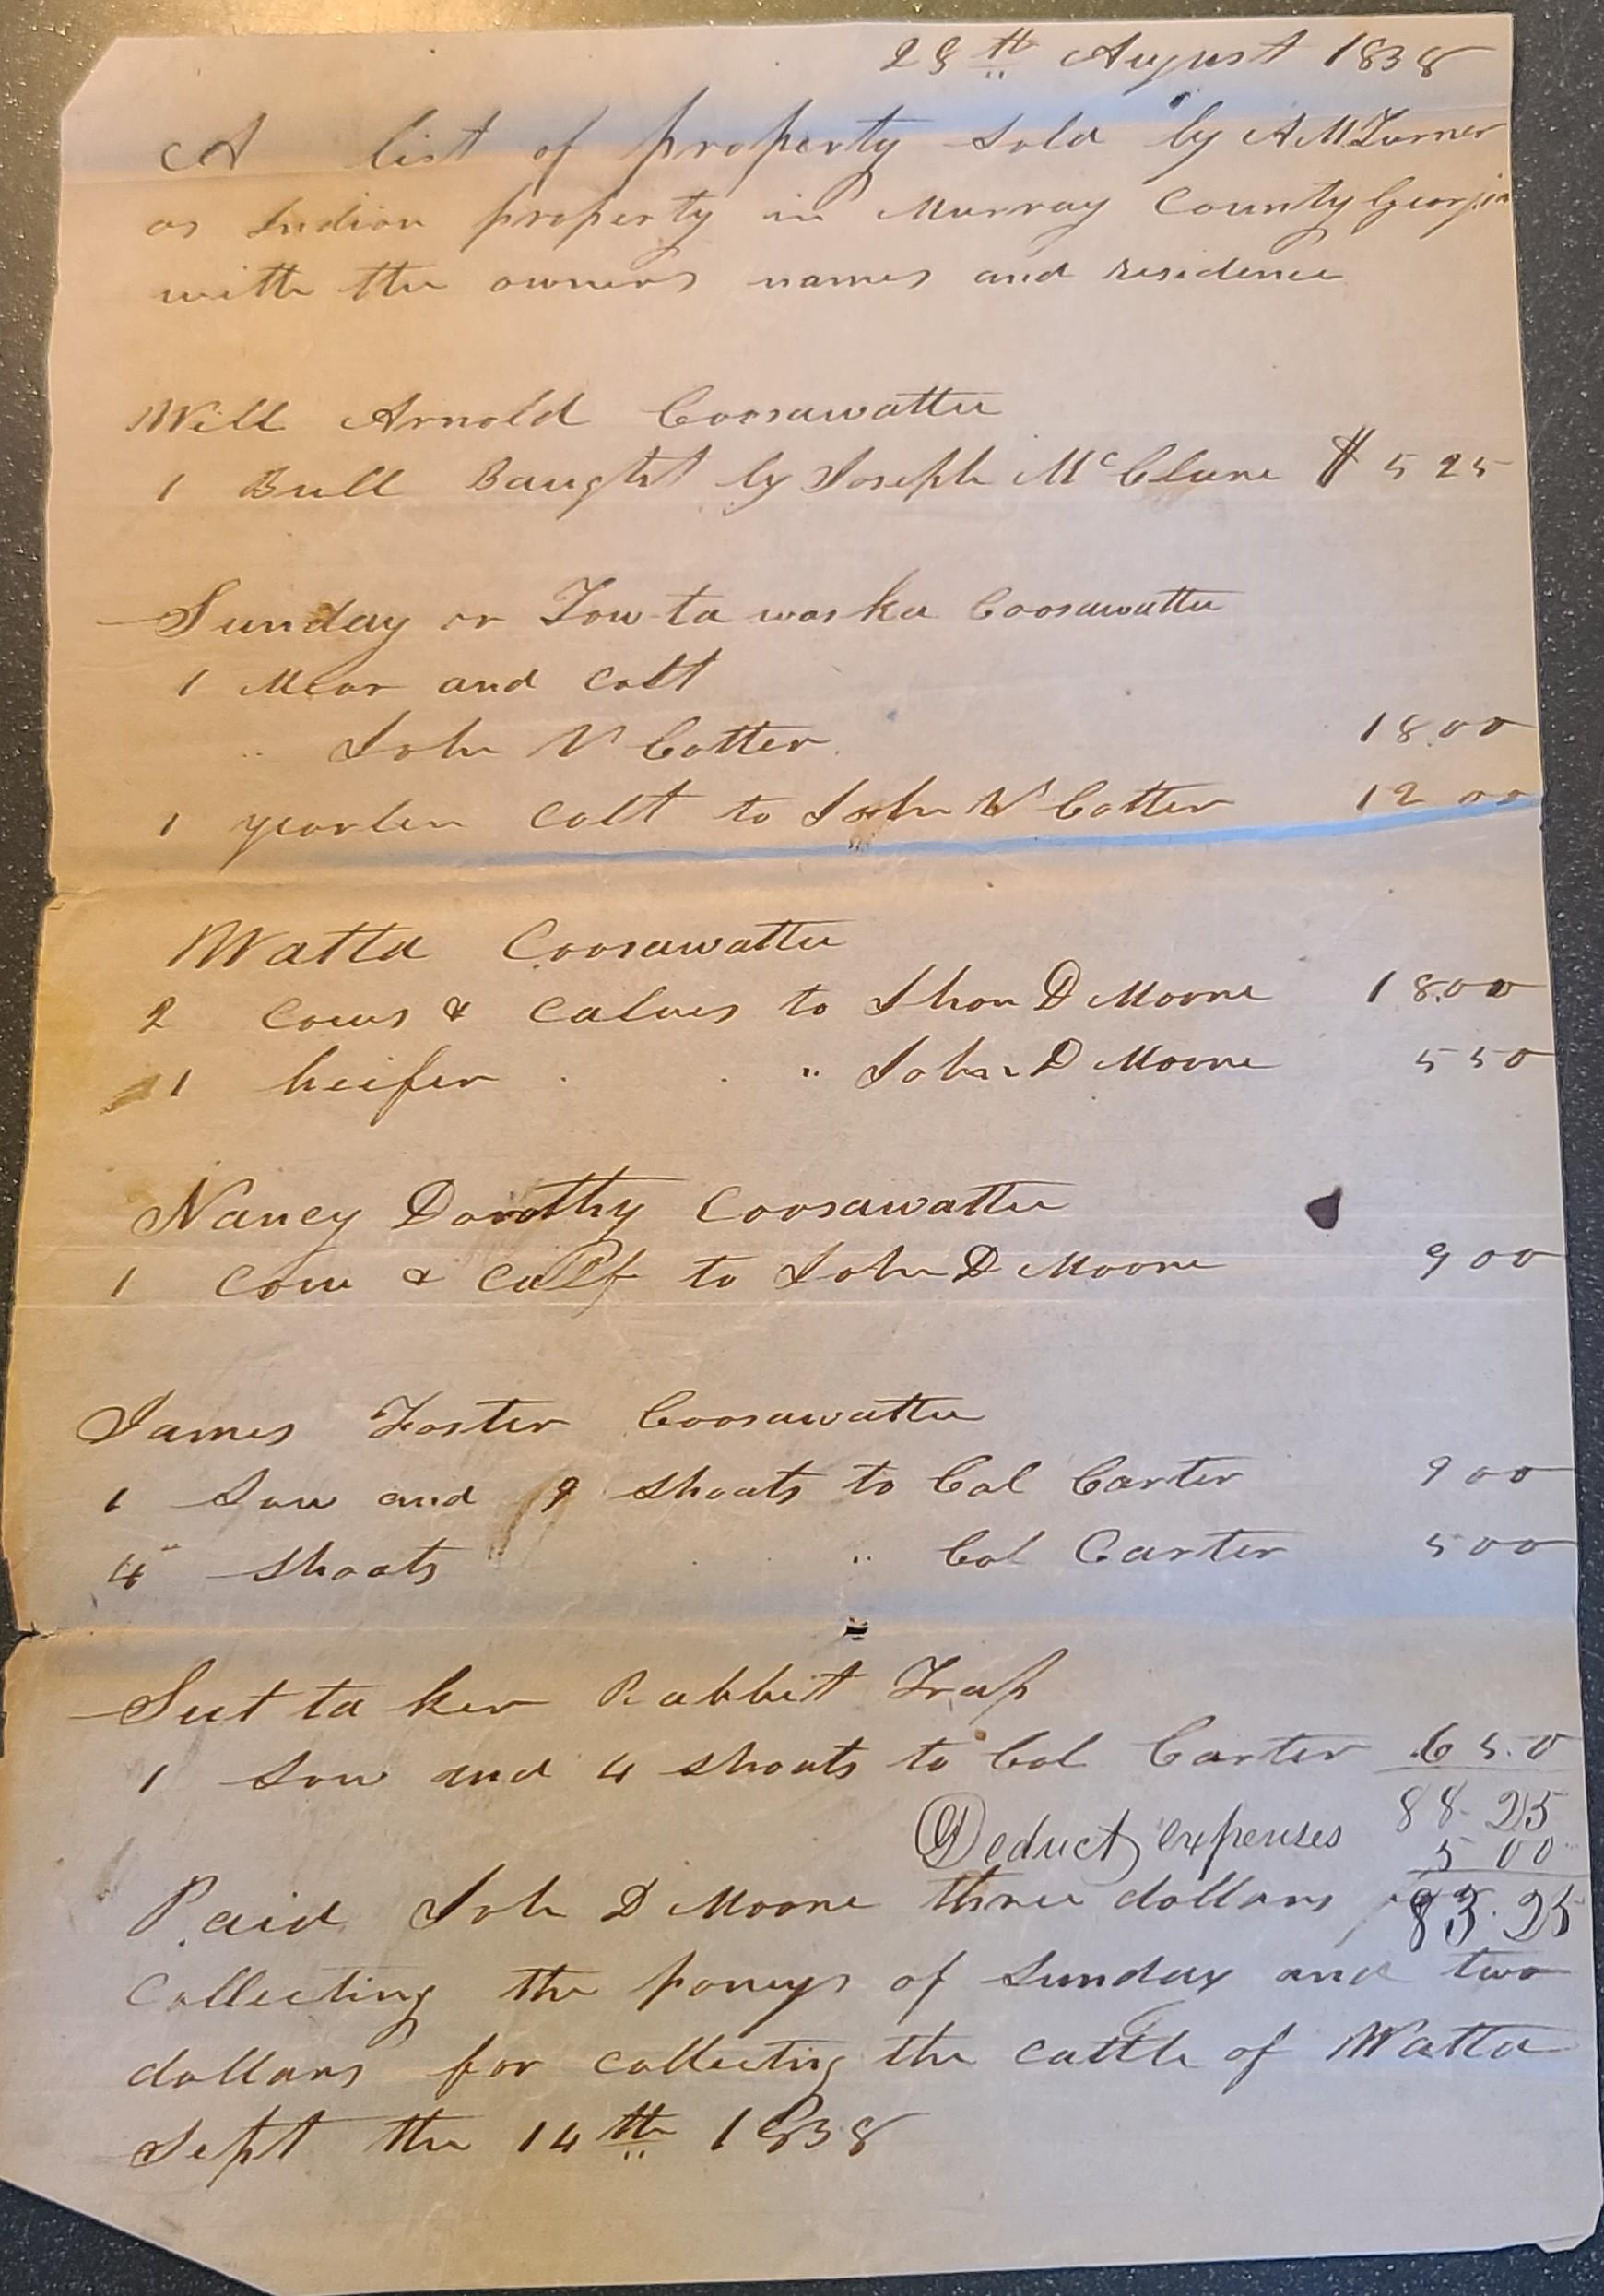 28th August 1838
A list of property sold by A M Turner
as Indian property in Murray County Georgia
with the owners names and residence
Will Arnold Coosawattee
1 Bull Baught by Joseph McClure $ 5 25
Sunday or Tow-ta was ka Coosawattee
1 Mear and Colt
" John V Cotter 18.00
1 yearlen Colt to John V Cotter 12 00
Watta Coosawattee
2 Cows & Calves to Jhon D Moore 18.00
1 heifer " John D Moore 5 50
Nancy Dorothy Coosawattee
1 Cow & Calf to John D Moore 9 00
James Foster Coosawattee
1 Sow and 9 Shoats to Col Carter 9 00
4 Shoats " Col Carter 5 00
Sut ta ker Rabbit Trap
1 Sow and 4 shoats to Col Carter 6 5.0
88 25
Deduct expenses 5 00
83.25
Paid Joh D Moore three dollars
Collecting the poneys of Sunday and two
dollars for collecting the cattle of Watta
Sept the 14th 1838